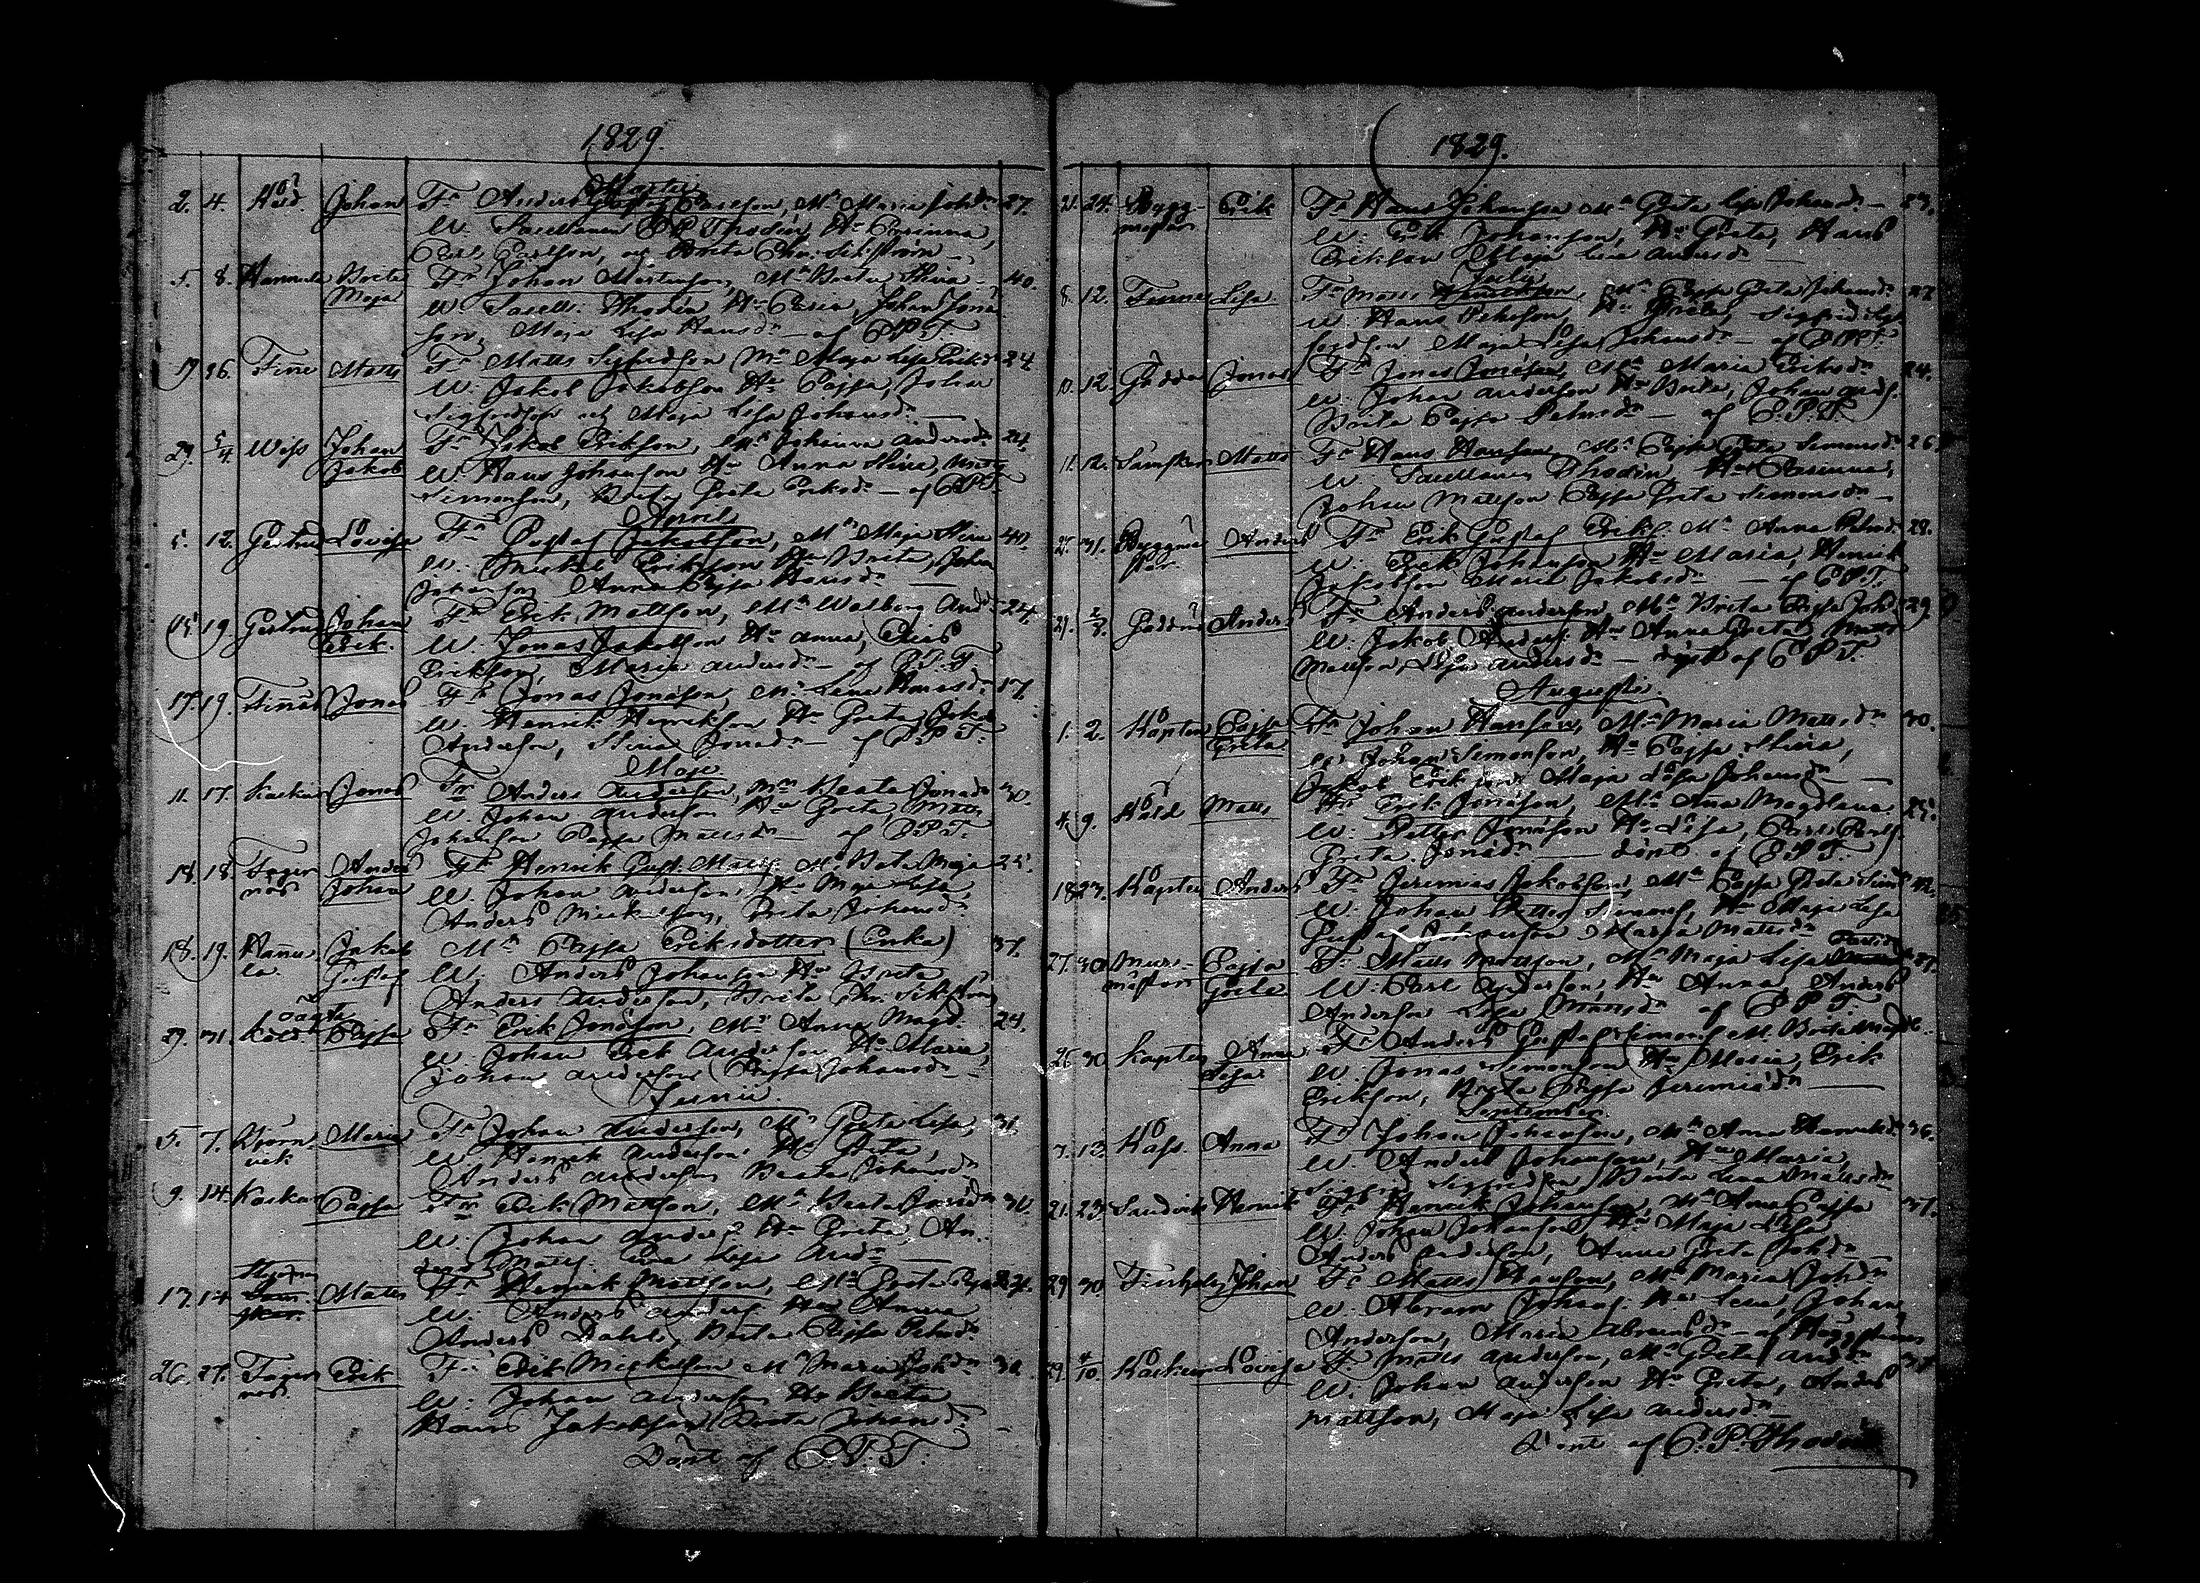 1829.
Martii
2. 4. Håsd. Johan Fr Anders Gustaf Carlson, Mr Maria Johdr 27.
W. Sacellanen C P Thodén, Hu Carinna,
Carl Carlson, og Brita Chr. Sikström
5. 8. Hannula Brita Maja Fr Johan Mårtenson, Mr Brita Stina 40.
W. Sacell. Thodén Hu Carin Johan Jona
son, Maja Lisa Hansdr af C P T.
19 26. Finne Matts Fr Matts Sigfridson Mr Maja Lisa Eriksdr 24.
W. Jakob Jakobson Hu Cajsa, Johan
Sigfridson och Maja Lisa Johansdr
29. 5/4 Wiss Johan Jakob Fr Jakob Erikson, Mr Johanna Andersdr 24.
W. Hans Johanson Hu Anna Stina, Matts
Simonson, Brita Greta Eriksdr af C P T.
Aprill
5. 12. Gertrud Lovisa Fr Gustaf Jakobson, Mr Maja Stina 40.
W. Mickel Erikson Hu Brita, Johan
Johanson Anna Cajsa Hansdr
15 19 Gertrud Johan Erik. Fr Erik Mattson, Mr Walborg Anddr 24.
W. Jonas Jakobson Hu Anna, Elias
Erikson, Maria Andersdr af C. P. T.
17. 19. Finnäs Jonas Fr Jonas Jonasson, Mr Lena Hansdr 17.
W. Henrik Henrikson Hu Greta, Jakob
Anderson, Stina Jonaedr af C. P. T.
Maji
11. 17. Kackur Jonas Fr Anders Anderson, Mr Beata Jonaedr 30.
W. Johan Anderson Hu Greta, Matts
Johanson Cajsa Mattsdr af C. P. T.
18. 18. Fager näs Anders Johan Fr Henrik Gust. Matts. Mr Brita Maja 25.
W. Johan Anderson, Hu Maja Lisa,
Anders Mickelson, Brita Johansdr
18. 19. Hannu la. Jakob Gustaf Mr Cajsa Eriksdotter (Enka) 37.
W. Anders Johanson Hu Brita
Anders Anderson, Brita Chr. Sikström
29. 31. Cajsa Fr Erik Jonasson, Mr Anna Magd. 24.
W. Johan Erik Anderson Hu Maria,
Johan Anderson Cajsa Johansdr
Junii.
5. 7. Björn vik Maria Fr Johan Anderson, Mr Greta Lisa, 31.
W. Henrik Anderson, Hu Greta,
Anders Anderson Beata Johansdr
9. 14. Kackur Cajsa Fr Erik Mattson, Mr Beata Jonaedr 30.
W. Johan Anders. Hu Greta, An-
ders Matts. Eva Lisa Anddr
13. 14 Matts Fr Henrik Mattson, Mr Greta Cajsa 24.
W. Anders Anders. Hu Anna
Anders Dahl, Brita Cajsa Petersdr
26. 27. Fager näs. Erik Fr Erik Mickelson Mr Maria Johdr 30.
W. Johan Anderson Hu Beata
Hans Jakobson Brita Johansdr
Döpt af C. P. T.
1829.
21. 24. Bygg- mästar Erik Fr Hans Johanson Mr Greta Lisa Johansdr 23.
W. Erik Johanson, Hu Greta, Hans
Erikson Maja Lena Andersdr
Julii
8. 12. Finne Lisa Fr Matts Henrikson, Mr Cajsa Greta Johansdr 27.
W. Hans Peterson, Hu Greta, Sigfrid Sig
fridson Maja Lisa Johansdr af C P T.
10. 12. Gädda Jonas Fr Jonas Jonasson, Mr Maria Eriksdr 24.
W. Johan Anderson Hu Brita, Johan Anders.
Brita Cajsa Petersdr af C. P. T.
11. 12. Matts Fr Hans Hanson Mr Cajsa Greta Simonsdr 26.
W. Sacellanen Thodén, Hu Carinna,
Johan Mattson Cajsa Greta Simonsdr
25. 31. Byggmä star Anders Fr Erik Gustaf Eriks. Mr Anna Petersdr 28.
W. Erik Johanson Hu Maria, Henrik
Jakobson Maria Jakobsdr af C P T.
29. 2/8. Gädda Anders Fr Anders Anderson, Mr Brita Cajsa Johdr 29.
W. Jakob Anders. Hu Anna Greta, Matts
Mattson, Lisa Andersdr döpt af C P T.
Augusti.
1. 2. Käpten Cajsa Greta Fr Johan Hanson, Mr Maria Mattsdr 30.
W. Johan Simonson, Hu Cajsa Stina,
Jakob Erikson Maja Lisa Johansdr
4. 9. Håsd Matts Fr Erik Jonasson, Mr Anna Magdlana 25.
W. Petter Jonasson Hu Lisa, Carl Carls.
Greta Jonaedr döpt af C P T.
18 23. Käpten Anders Fr Jeremias Jakobson, Mr Cajsa Greta Sim. 42.
W. Johan Petter Simons. Hu Maja Lisa
Gustaf Johanson Maria Mattsdr
27. 30 Mur- mästar Cajsa Greta Fr Matts Mattson, Mr Maja Lisa
W. Carl Anderson, Hu Anna, Anders
Anderson Lisa Månsdr af C P T.
26 30 Käpten Anna Lisa Fr Anders Gustaf Simons. Mr Brita Magdl.
W. Jonas Simonson Hu Maria, Erik
Erikson, Brita Cajsa Jeremiædr
September.
7. 13. Kass. Anna Fr Johan Johanson, Mr Anna Henriksdr 36.
W. Anders Johanson, Hu Maria,
Sigfrid Sigfridson Brita Lena Mattsdr
21. 23. Sandvik Henrik Fr Henrik Johanson, Mr Anna Cajsa 37.
W. Johan Johanson, Hu Maja Lisa
Anders Anderson, Anna Greta Johdr
29 30 Johan Fr Matts Hanson, Mr Maria Johdr
W. Abram Johans. Hu Lena, Johan
Anderson, Maria Abramsdr af Häggström
29. 4/10. Kackur Lovisa Fr Matts Anderson, Mr Greta Anddr 37.
W. Johan Anderson Hu Greta, Anders
Mattson, Maja Lisa Andersdr
Döpt af C. P. Thodén